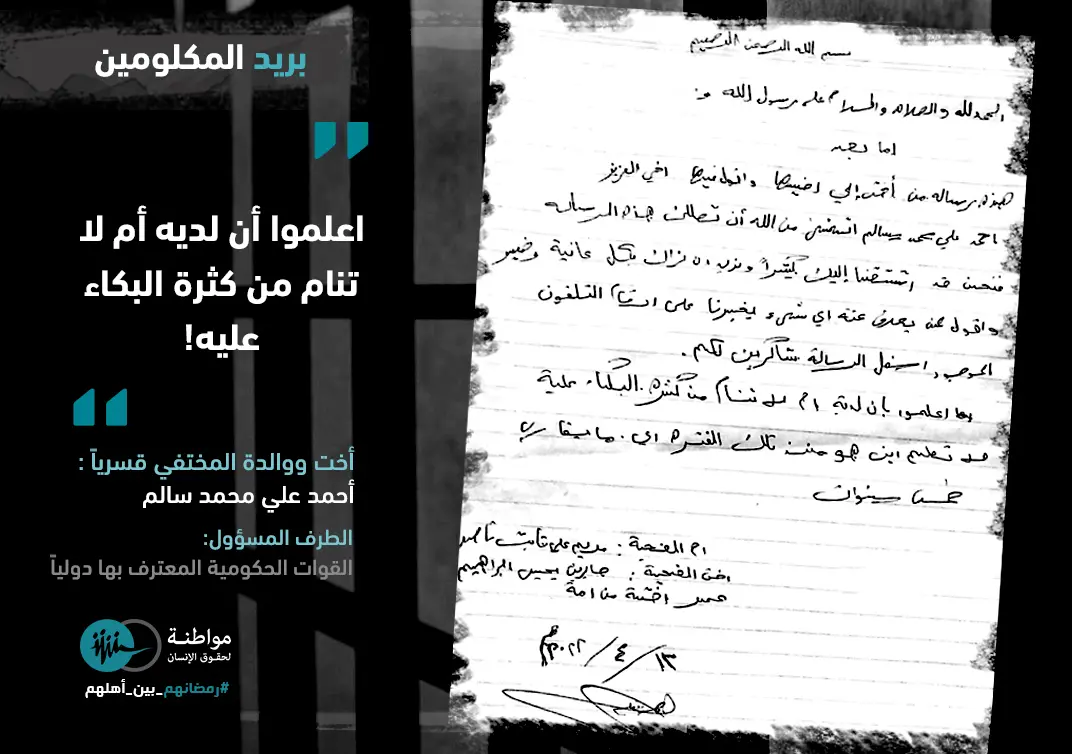 بريد المكلومين
اعلموا أن لديه أم لا
تنام من كثرة البكاء
عليه!
أخت ووالدة المختفي قسرياً :
أحمد علي محمد سالم
الطرف المسؤول:
القوات الحكومية المعترف بها دولياً
مواطنة
لحقوق الإنسان
#رمضانهم_بين_أهلهم
بسم الله الرحمن الرحيم
الحمدلله والصلاه والسلام على رسول الله و:
اما بعد
هذه رساله من أخت إلى اخيها اخي العزيز
احمد علي محمد سالم اتمنى من الله أن تصلك هذه الرساله
فنحن قد اشتقنا إليك كثيراً ونريد ان نراك بكل عافية وخير
واقول لمن يعرف عنه اي شيء يخبرنا على التلفون
الموجود اسفل الرسالة شاكرين لكم.
اعلموا بان لديه ام لا تنام من كثره البكاء علية
لا تعلم اين هو منذ تلك الفتره اي ما يقارب
خمس سنوات
ام الضحية : مريم علي ثابت ناصر
اخت الضحية :
من امة
١٣/٤/٢٠٢٢م